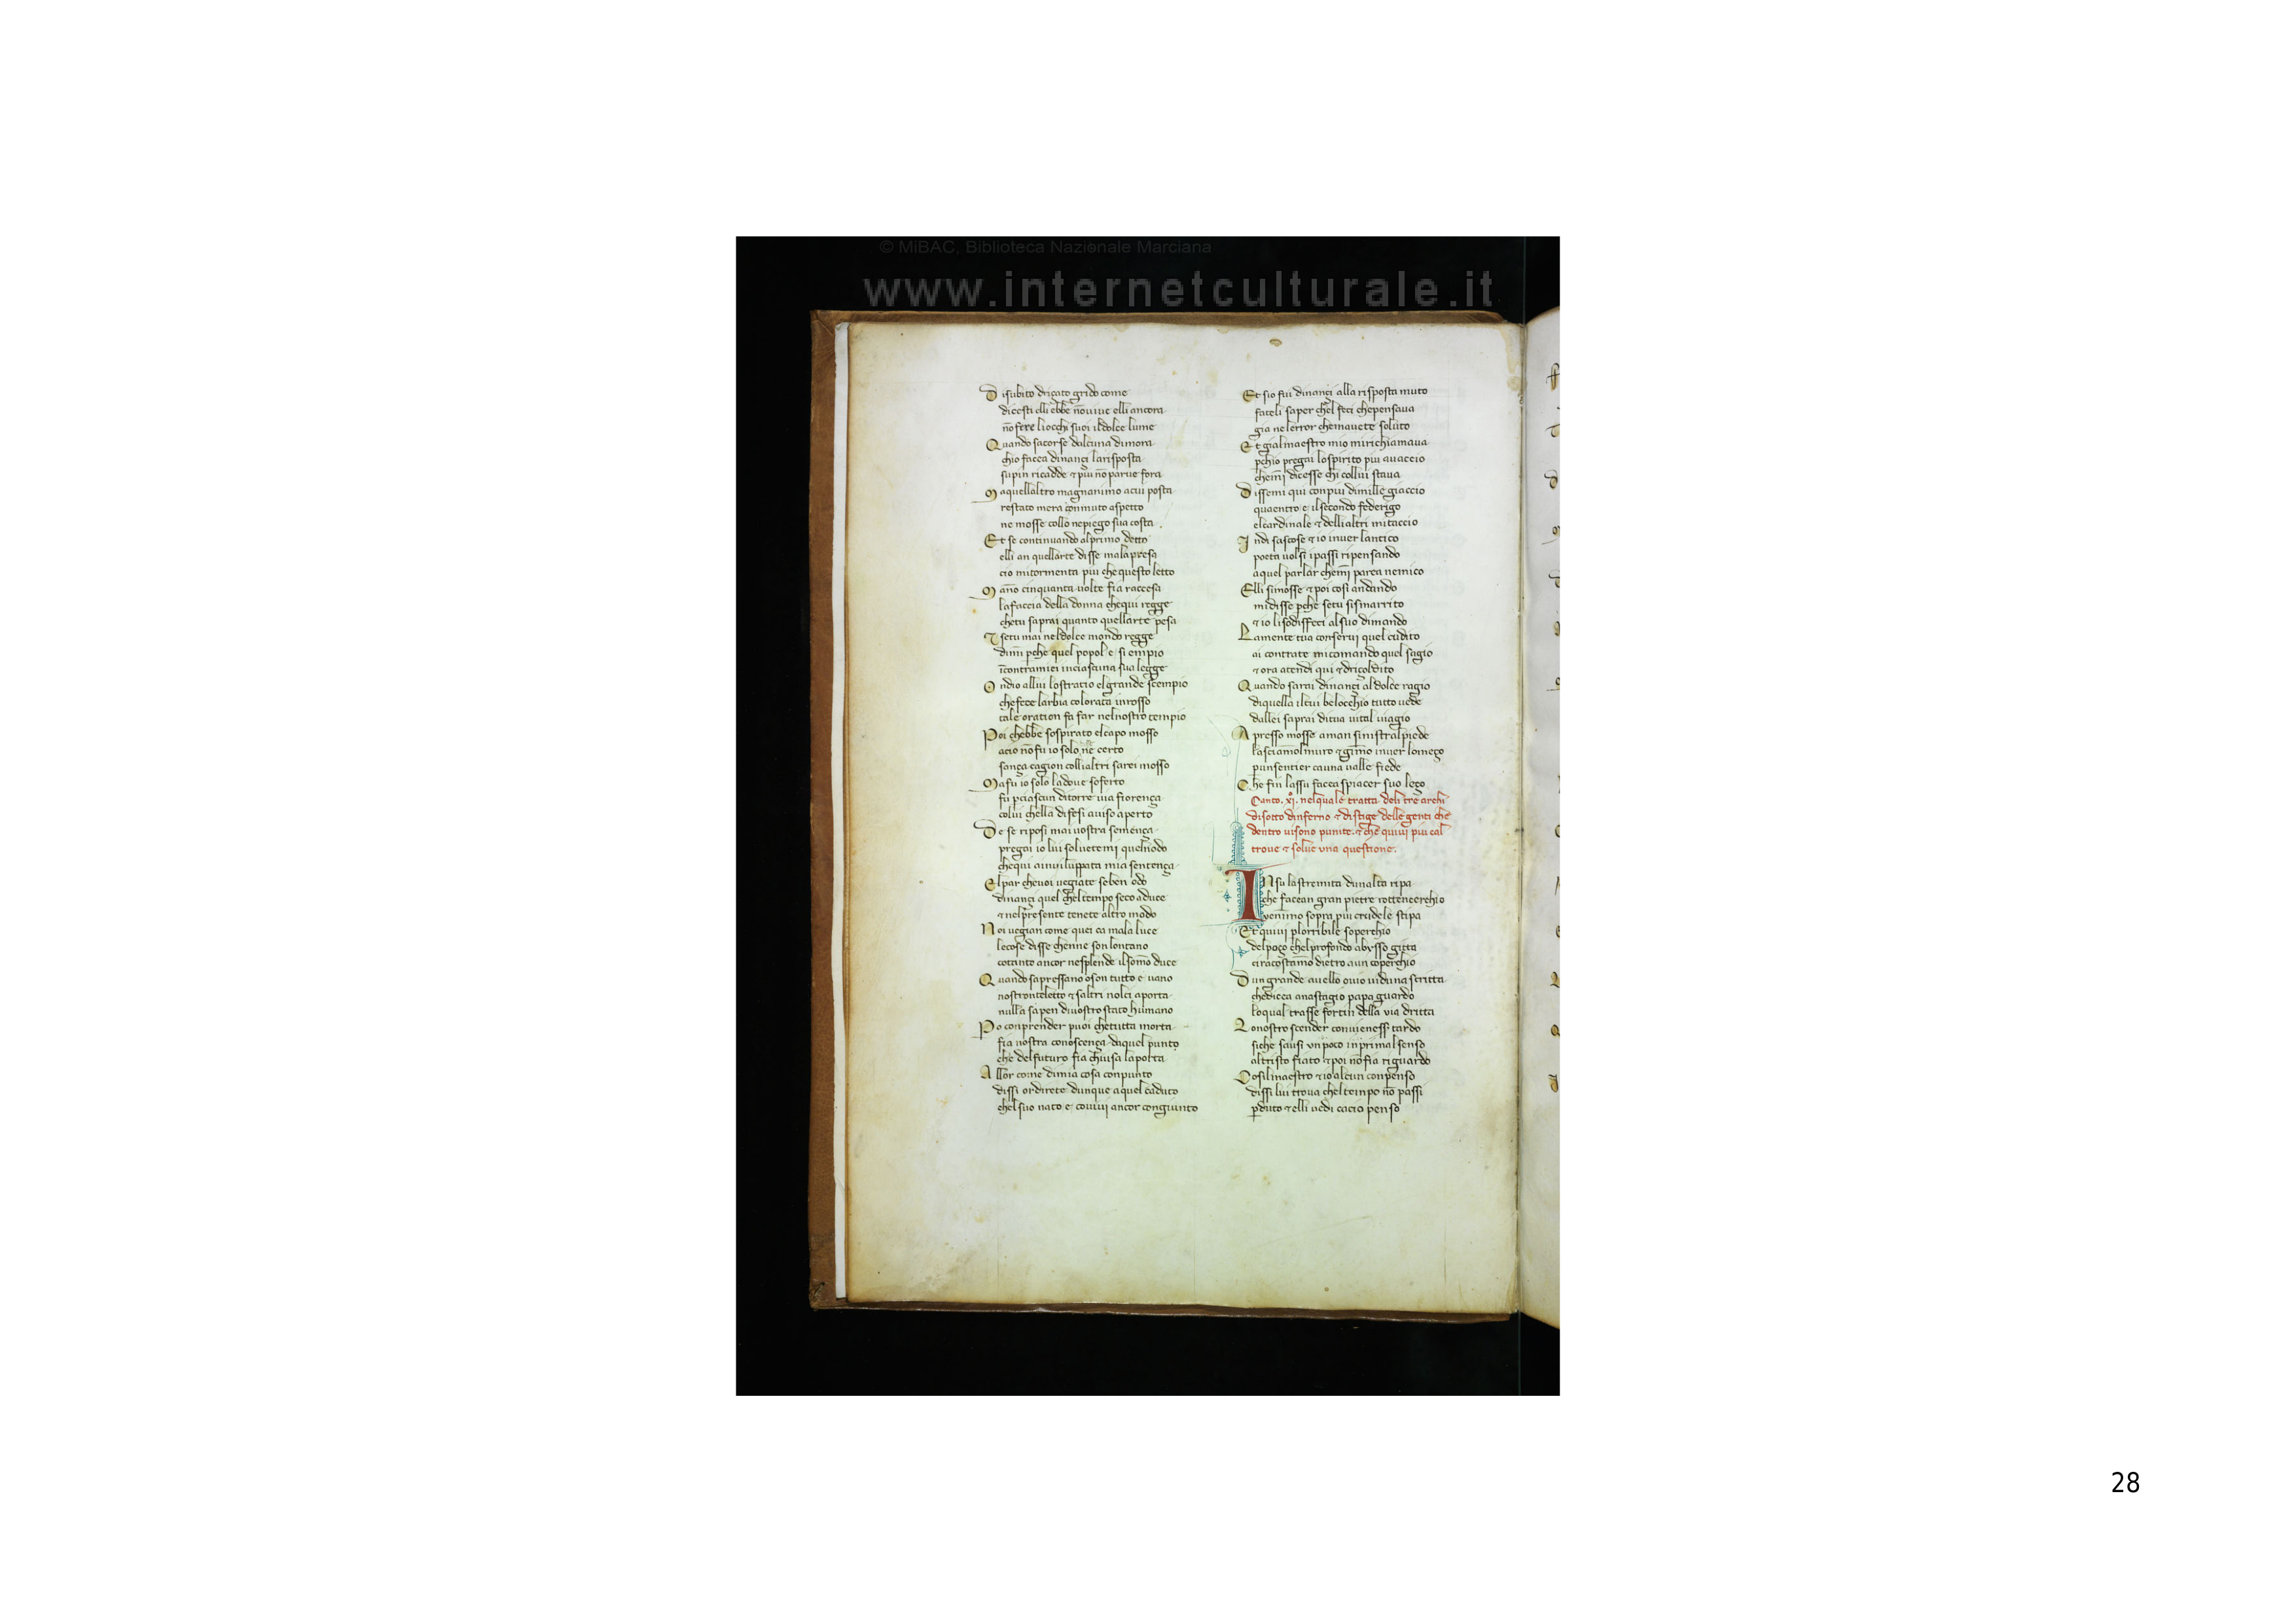 © MiBAC, Biblioteca Nazionale Marciana
www.internetculturale.it
Di subito driçato grido come
dicesti elli ebbe nōuiue elli ancora
nō fere liocchi suoi ildolce lume
Quando sacorse dalcuna dimora
chio facea dinançi larisposta
supin ricadde ⁊ piu nō parue fora
Maquellaltro magnanimo acui posta
restato mera conmuto aspetto
ne mosse collo nepiego sua costa
Et se continuando alprimo detto
elli an quellarte disse malapresa
cio mitormenta piu che questo letto
Ma nō cinquanta uolte fia raccesa
lafaccia della donna chequi regge
chetu saprai quanto quellarte pesa
⁊ setu mai neldolce mondo regge
dimi pche quel popol e si empio
īcontramiei inciascuna sua legge
Ondio allui lostratio elgrande scempio
chefece larbia colorata inrosso
tale oration fa far nelnostro tempio
Poi chebbe sospirato elcapo mosso
acio nōfu io solo ne certo
sança cagion collialtri sarei mosso
Mafu io solo ladoue soferto
fu pciascun ditorre uia fiorença
colui chella difesi auiso aperto
De se riposi mai uostra semença
pregai io lui soluetemi quelnodo
chequi a inuiluppata mia sentença
Elpar cheuoi uegiate seben odo
dinançi quel cheltempo seco aduce
⁊ nelpresente tenete altro modo
Noi uegian come quei ca mala luce
lecose disse chenne son lontano
cotanto ancor nesplende ilsomō duce
Quando sapressano oson tutto e uano
nostronteletto ⁊ saltri nolci aporta
nulla sapen diuostro stato humano
Po conprender puoi chetutta morta
fia nostra conoscença daquel punto
che delfuturo fia chiusa laporta
Allor come dimia cosa conpunto
dissi ordirete dunque aquel caduto
chelsuo nato e couiui ancor congiunto
Et sio fui dinançi alla risposta muto
fateli saper chel feci chepensaua
gia nelerror chemauete soluto
Et gialmaestro mio mirichiamaua
pchio pregai lospirito piu auaccio
chemi dicesse chi collui staua
Dissemi qui conpiu dimille giaccio
quaentro e ilsecondo federigo
elcardinale ⁊ dellialtri mitaccio
Indi sascose ⁊ io inuer lantico
poeta uolsi ipassi ripensando
aquel parlar chemi parea nemico
Elli simosse ⁊ poi cosi andando
midisse pche setu sismarrito
⁊ io lisodisfeci alsuo dimando
Lamente tua conserui quel cudito
ai contrate micomando quel sagio
⁊ ora atendi qui ⁊ driçoldito
Quando sarai dinançi aldolce ragio
diquella ilcui belocchio tutto uede
dallei saprai ditua uital uiagio
Apresso mosse aman sinistralpiede
lasciamolmuro ⁊ gimō inuer lomeço
punsentier cauna ualle fiede
Che fin lassu facea spiacer suo leço
Canto. xj. nelquale tratta deli tre archi
disotto dinferno ⁊ distige delle genti che
dentro uisono punite. ⁊ che quiui piu cal
troue ⁊ solue una questione.
INsu lastremita dunalta ripa
che facean gran pietre rottencerchio
uenimo sopra piu crudele stipa
Et quiui plorribile soperchio
delpoço chelprofondo abysso gitta
ciracostamo dietro aun coperchio
Dun grande auello ouio uiduna scritta
chedicea anastagio papa guardo
loqual trasse fortin della via dritta
Lo nostro scender conuieness tardo
siche sausi un poco in primalsenso
altristo fiato ⁊ poi nōfia riguardo
Cosilmaestro ⁊ io alcun conpenso
dissi lui troua cheltempo nō passi
pduto ⁊ elli uedi cacio penso
28